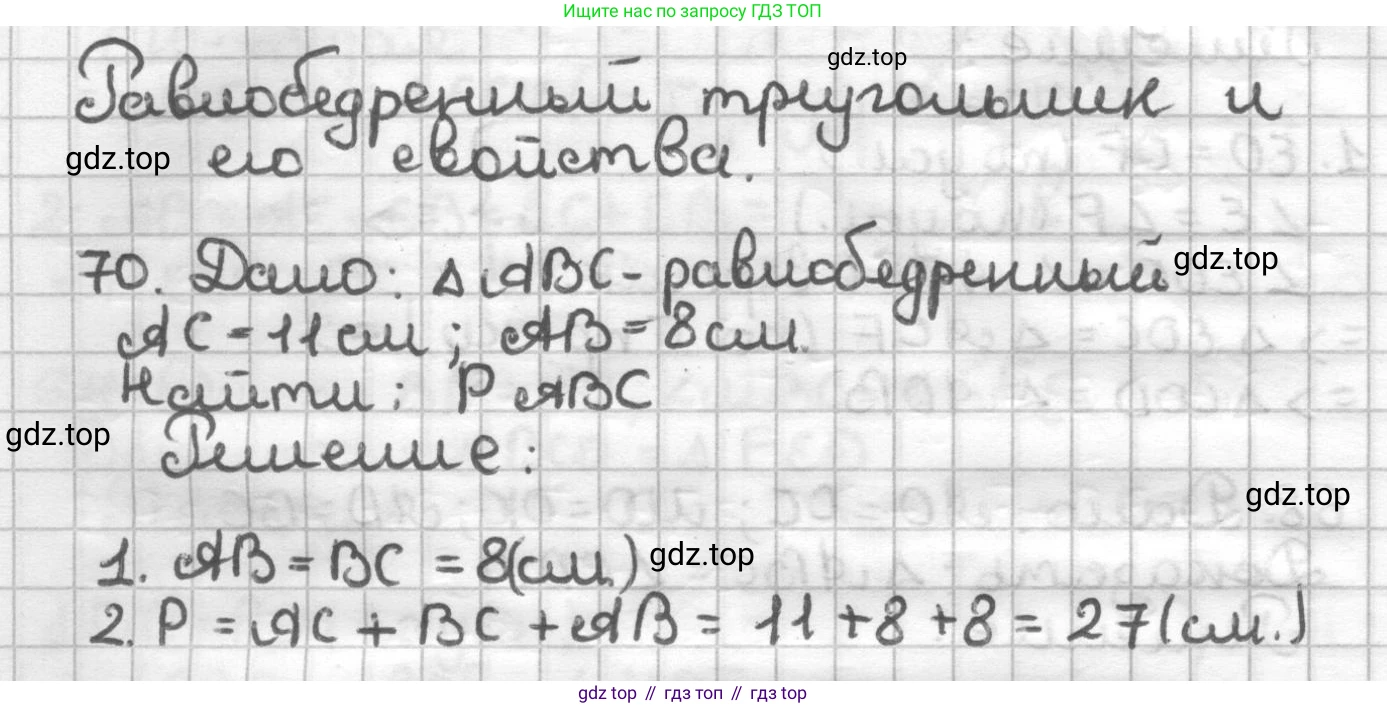 Ищите нас по запросу ГДЗ ТОП
gdz.top
Равнобедренный треугольник и
gdz.top его свойства.
70. Дано: ΔABC - равнобедренный gdz.top
AC = 11 см ; AB = 8 см.
Найти : P ABC
gdz.top Решение :
gdz.top
1. AB = BC = 8(см.) gdz.top
2. P = AC + BC + AB = 11 + 8 + 8 = 27 (см.)
gdz top // гдз топ // gdz top